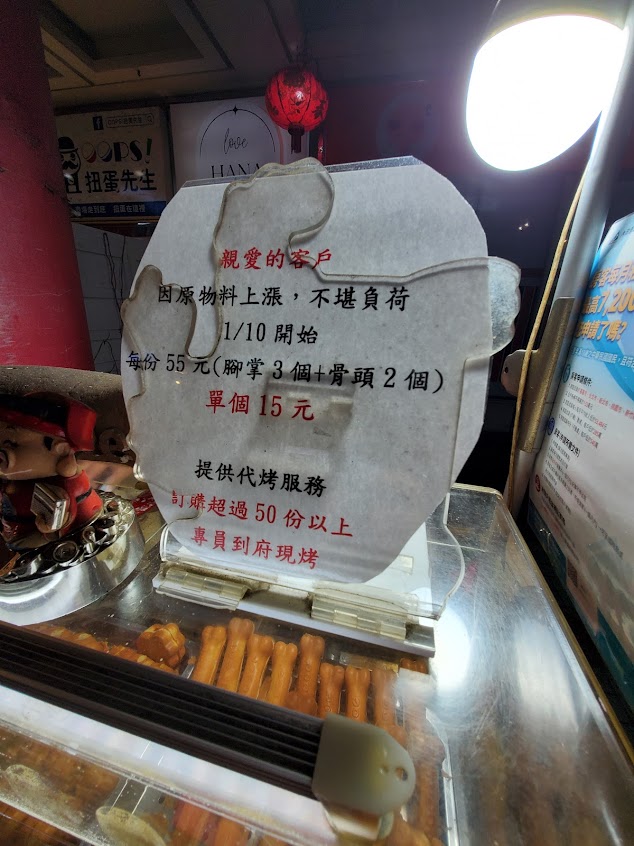 OOPS!
扭蛋先生
love
HANA
親愛的客戶
因原物料上漲，不堪負荷
1/10 開始
每份 55 元(腳掌 3 個+骨頭 2 個)
單個 15 元
提供代烤服務
訂購超過 50 份以上
專員到府現烤
7,200
申請了嗎?